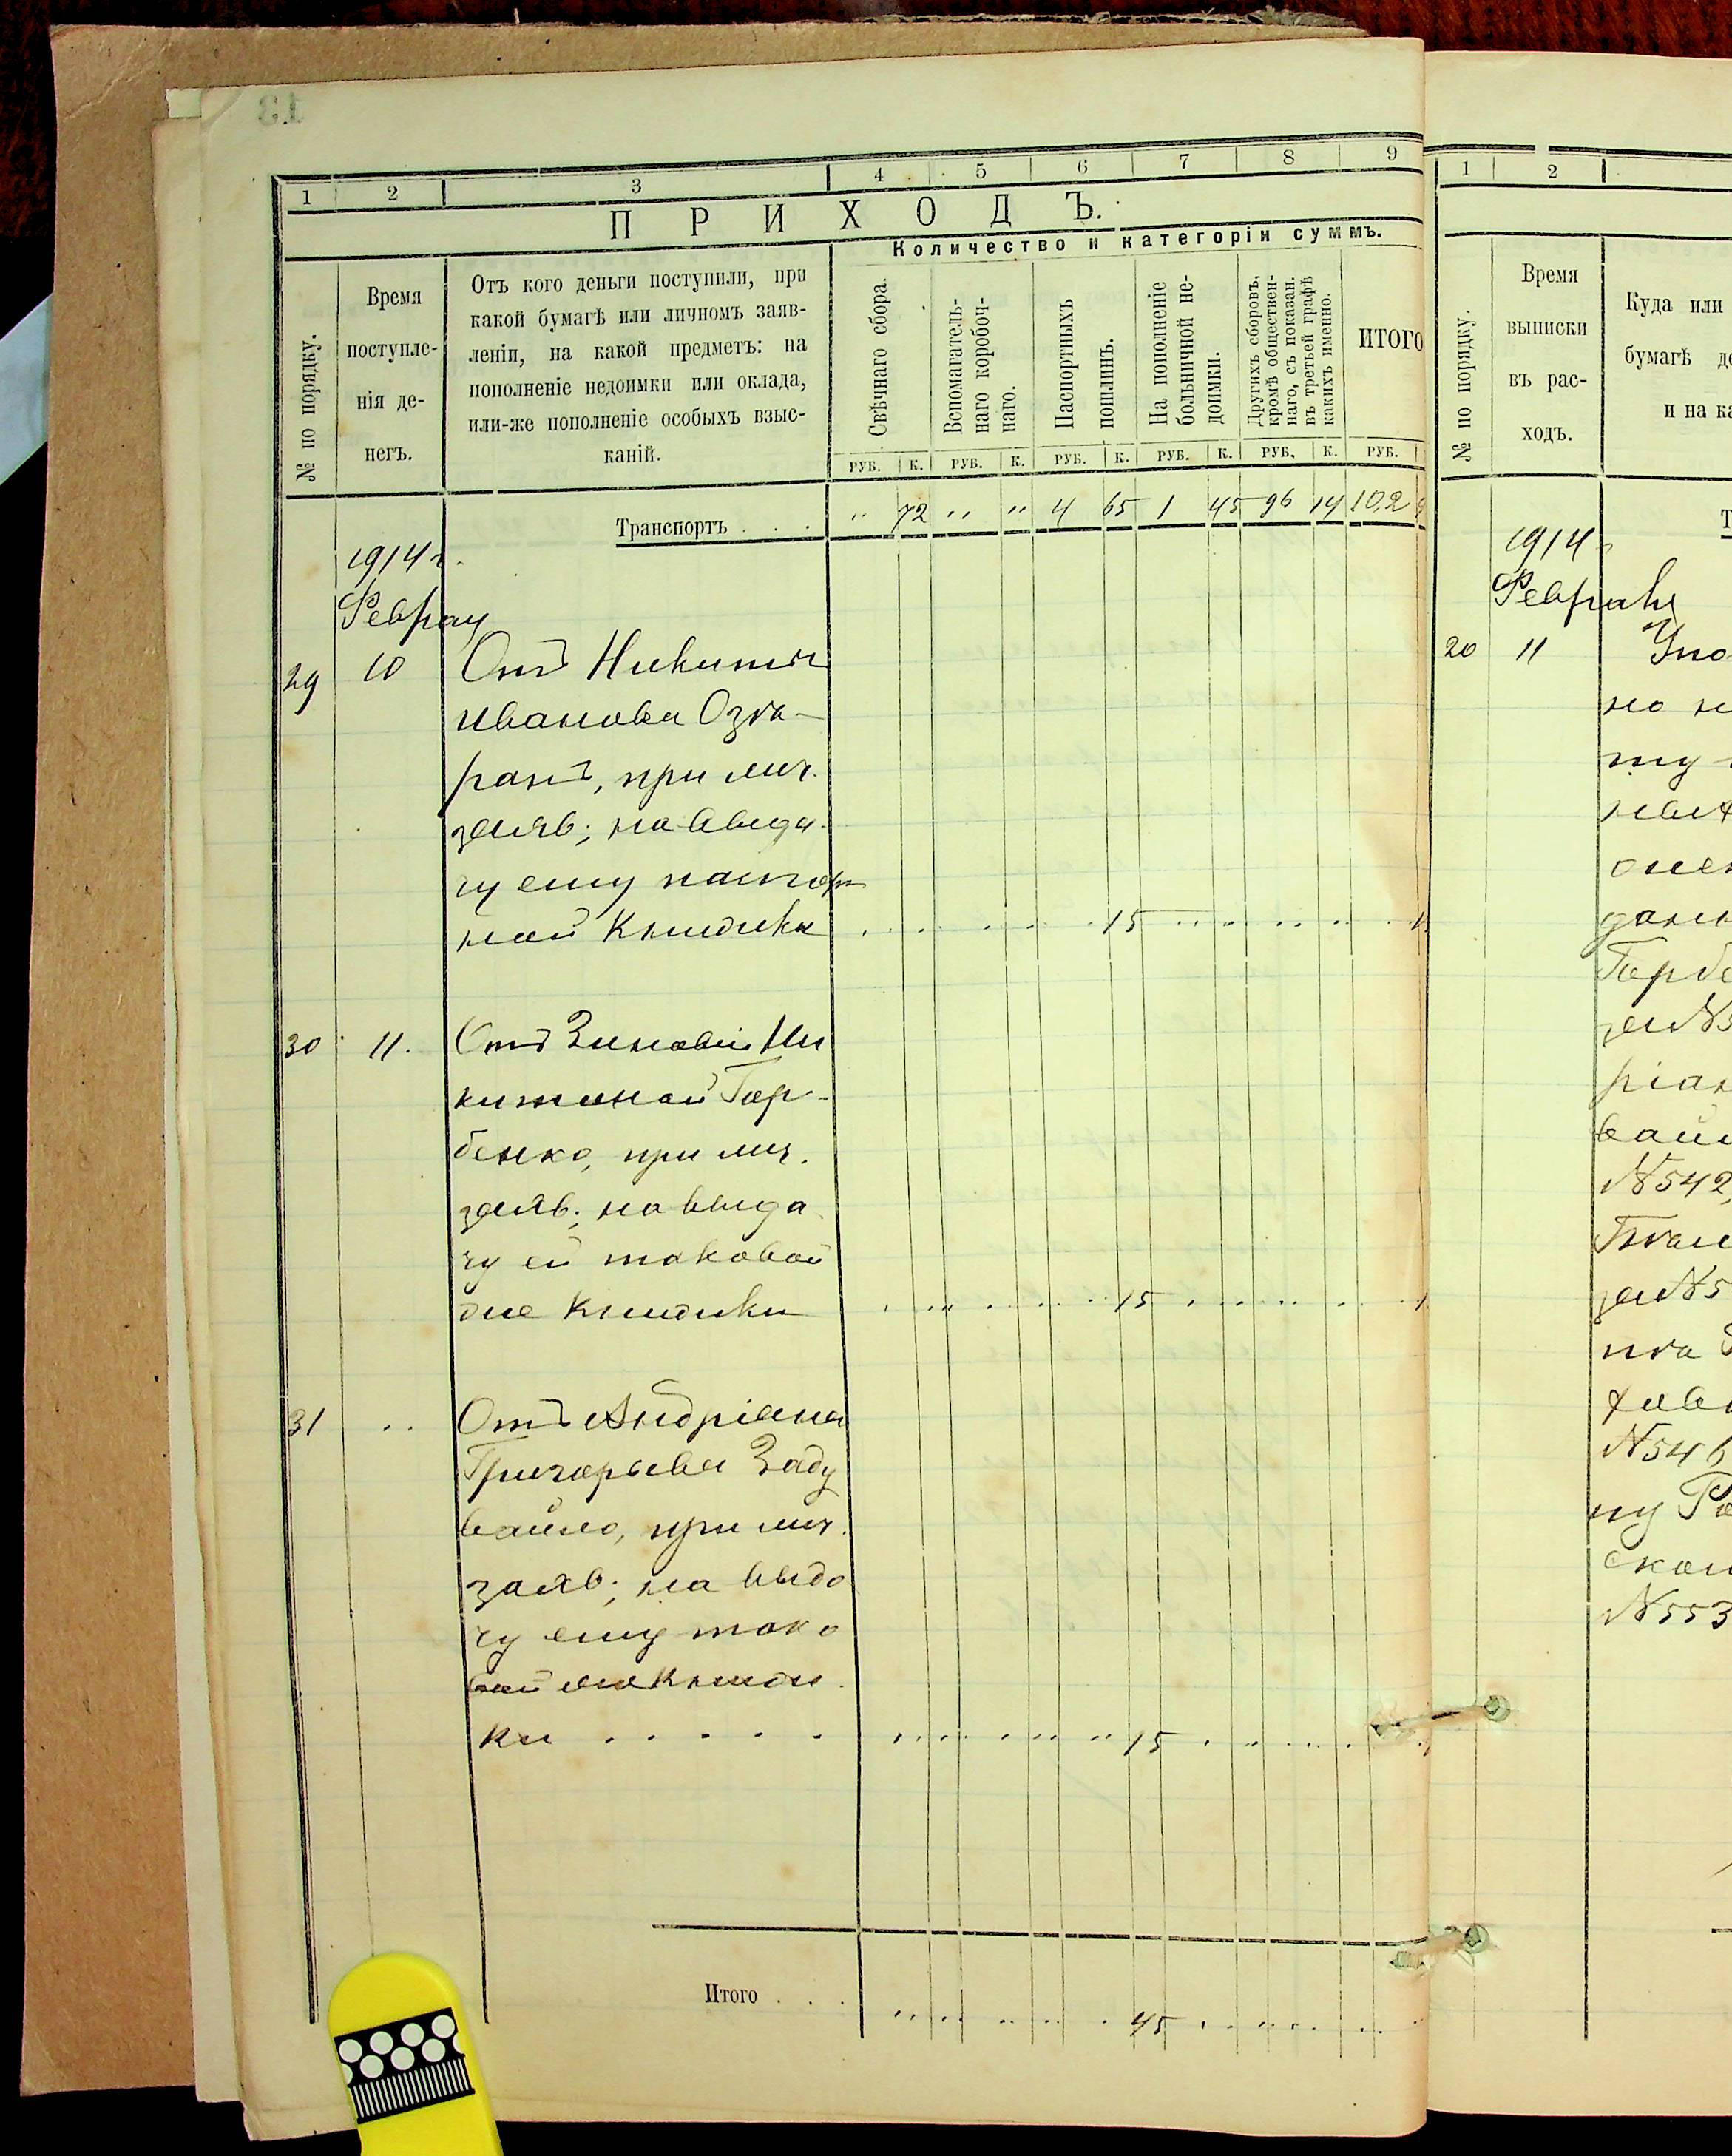 1 2 3 4 5 6 7 8 9
ПРИХОДЪ.
Количество и категоріи суммъ.
№ по порядку.
Время
поступле-
нія де-
негъ.
Отъ кого деньги поступили, при
какой бумагѣ или личномъ заяв-
леніи, на какой предметъ: на
пополненіе недоимки или оклада,
или-же пополненіе особыхъ взыс-
каній.
Свѣчнаго сбора.
Вспомагатель-
наго коробоч-
наго.
Паспортныхъ
пошлинъ.
На пополненіе
больничной не-
доимки.
Другихъ сборовъ,
кромѣ обществен-
наго, съ показан.
въ третьей графѣ
какихъ именно.
ИТОГО
РУБ. К. РУБ. К. РУБ. К. РУБ. К. РУБ. К. РУБ.
Транспортъ . . . " 72 " " 4 65 1 45 96 14 102
1914 г.
Феврал
29 10 Отъ Никиты
Иванова
при лич.
заяв; на выда
чу ему паспорт
ной книжки 15
30 11. Отъ Зиновіи Ни
китиной Гор-
бенко, при лич.
заяв; на выда
чу ей таковой
же книжки 15
31 .. Отъ Андріана
Григорьева Заду
вайло, при лич.
заяв; на выда
чу ему тако
вой же книж
ки . . . . . 15
Итого . . . 45
1 2
№ по порядку.
Время
выписки
въ рас-
ходъ.
Куда или
бумагѣ
и на
1914
Февраль
20 11
но
ту
дан
Горбе
за №5
ріан
вайл
№542,
за №5
№546
ну
ском
№553